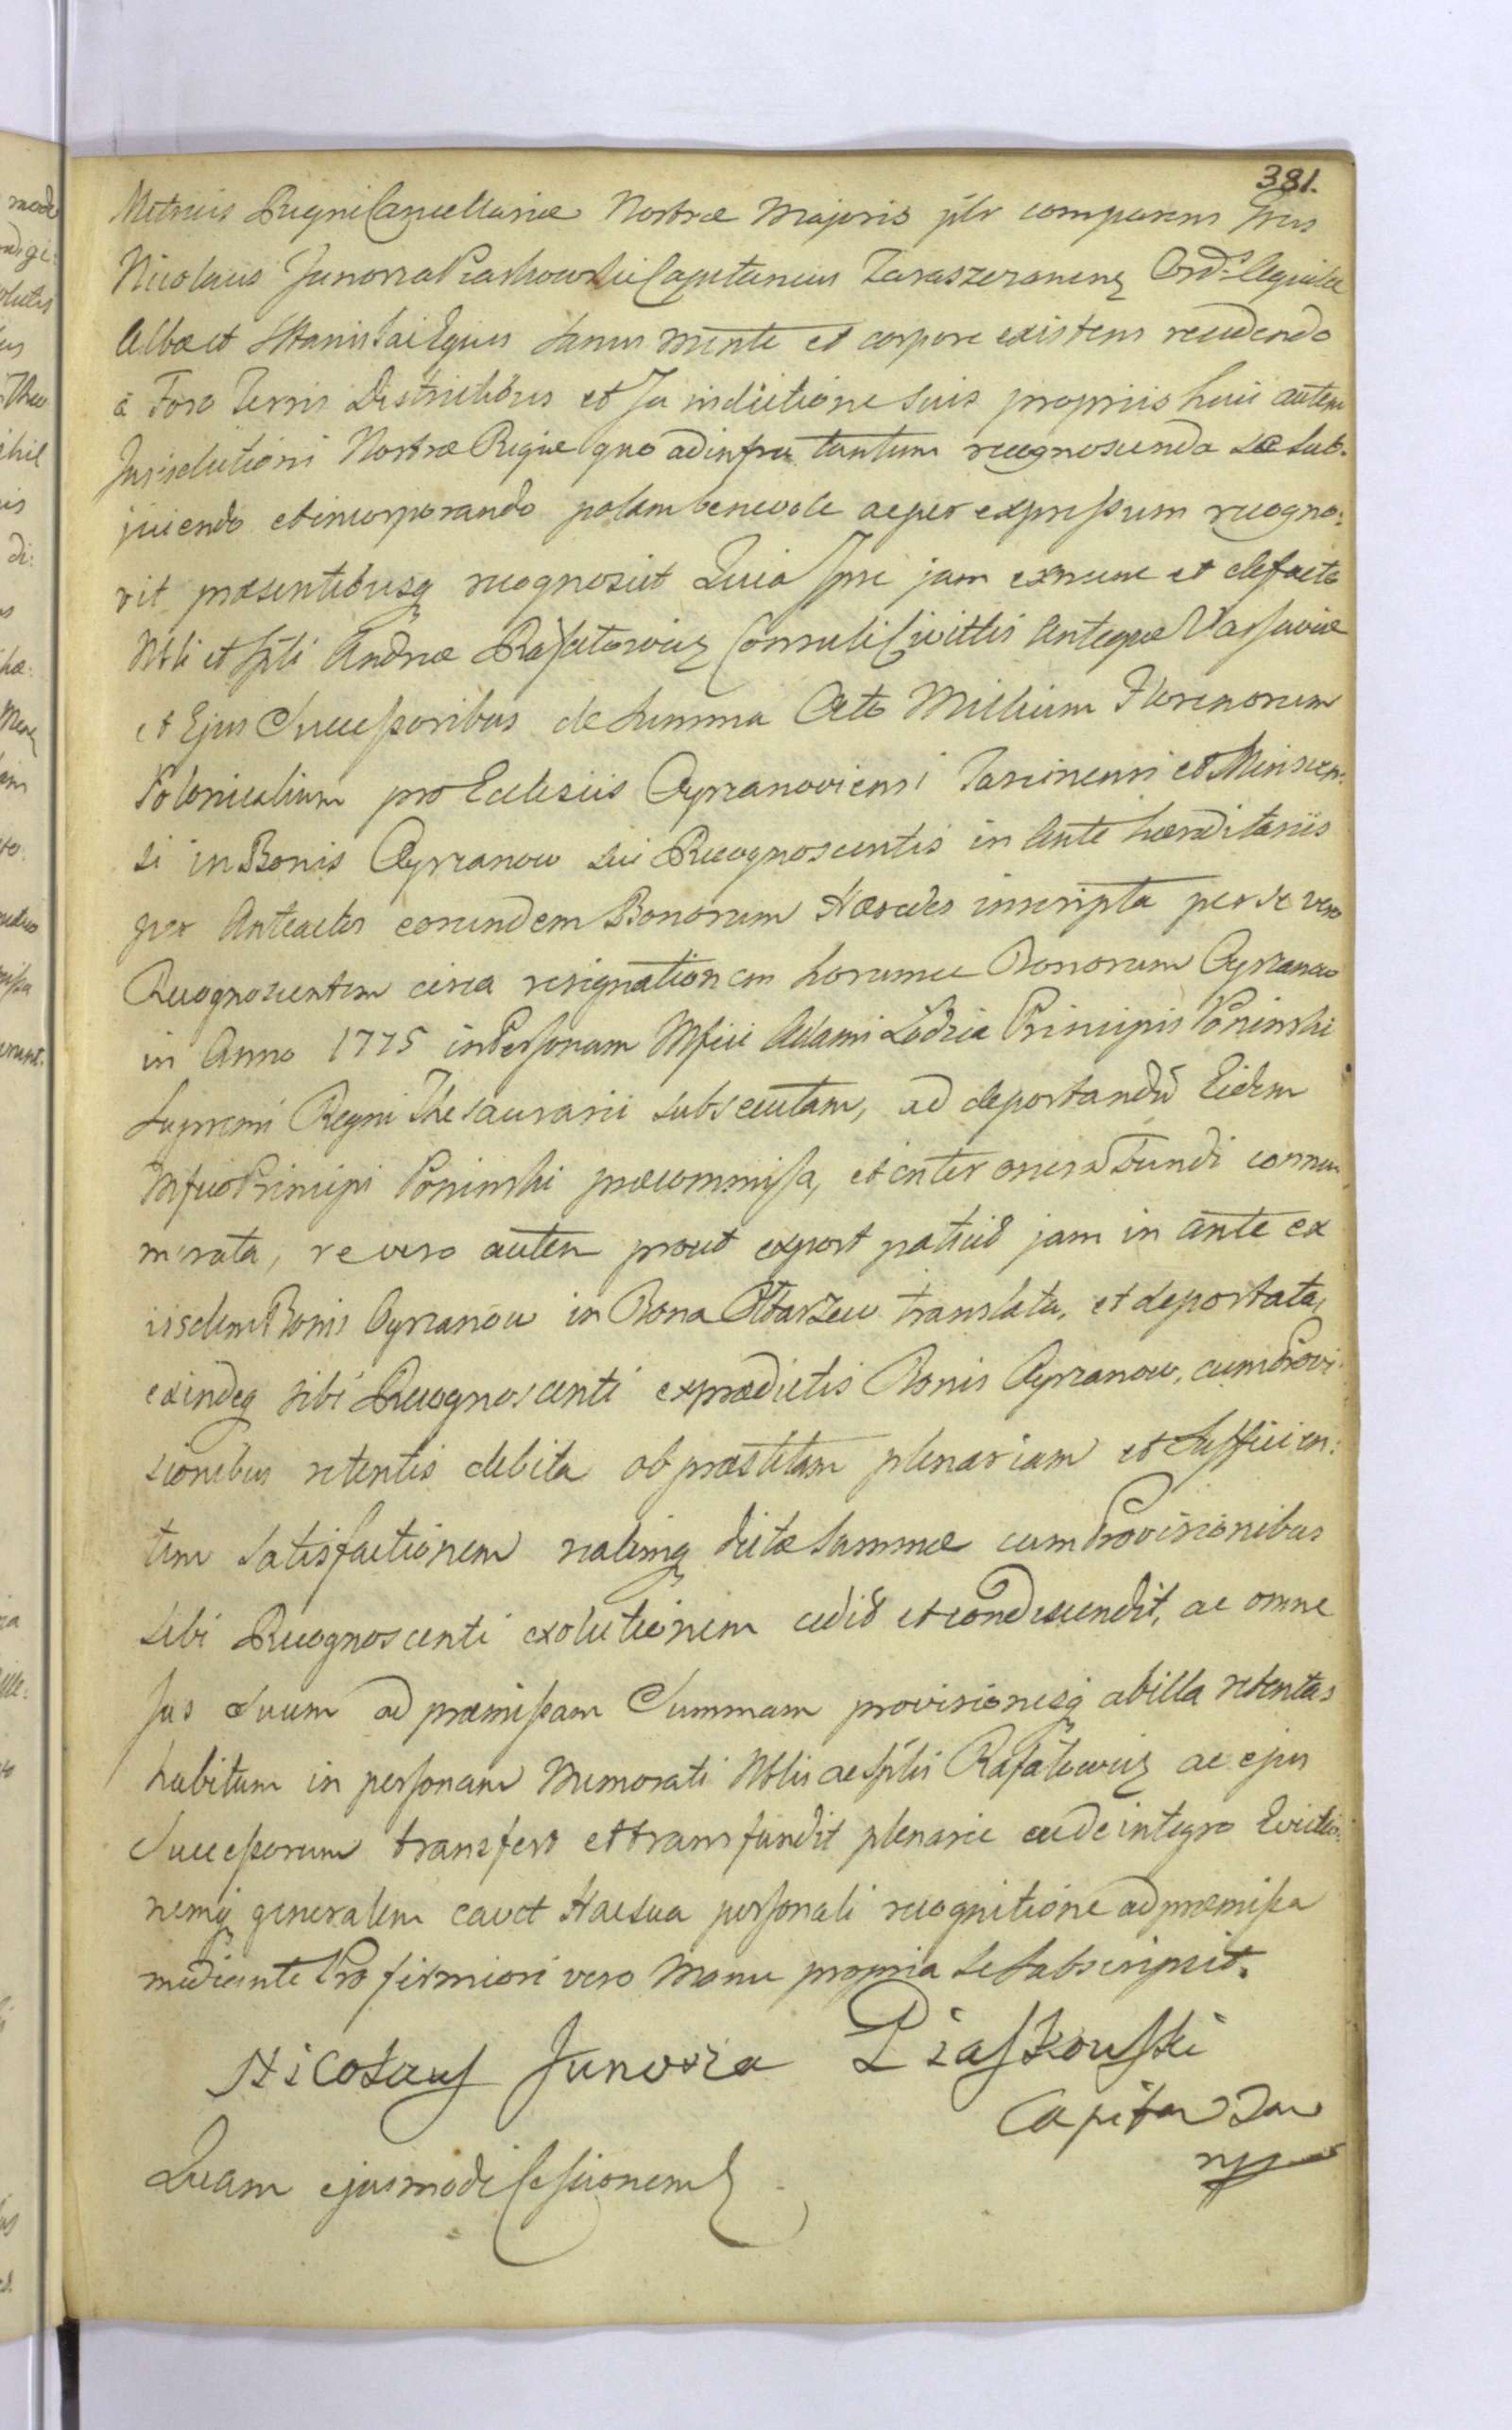 381.
Metrices Regni Cancellariae Nostrae Majoris plr comparens
Nicolaus Junosza Piaskowski Capitaneus Taraszczanens Ord. Aquilae
Albae et S Stanislai Eques sanus mente et corpore existens recedendo
a Foro Terris Districtibus et Jurisdictione suis propriis huic autem
Jurisdictioni Nostrae Regiae quo ad infra tantum recognoscenda se sub-
jiciendo et incorporando palam benevole ac per expressum recogno:
vit praesentibusq recognoscit Quia Ipse jam exnunc et defacto
Nbli et Spli Andreae Rafałowicz Consuli Civittis Antiquae Varsaviae
et Ejus Successoribus de Summa Octo Millium Florenorum
Polonicalium pro Ecclesiis Oyrzanoviensi Jasinensi et Minscen:
si in Bonis Oyrzanow sui Recognoscentis in ante haereditariis
per Anteactos eorundem Bonorum Haeredes inscripta per se vero
Recognoscentem circa resignationem horumce Bonorum Oyrzanow
in Anno 1775 in Personam Mfici Adami Łodzia Principis Poninski
Supremi Regni Thesaurarii subsecutam, ad deportandũ Eidem
Mfico Principi Poninski praecommissa, et inter onera Fundi connu
merata, re vero autem prout expost patuit jam in ante ex
iisdem Bonis Oyrzanow in Bona Ołtarzew translata, et deportata,
exindeq sibi Recognoscenti ex praedictis Bonis Oyrzanow, cum Provi
sionibus retentis debita ob praestitam plenariam et sufficien:
tem Satisfactionem realemq dictae Summae cum Provisionibus
sibi Recognoscenti exolutionem cedit et condescendit, ac omne
Jus Suum ad praemissam Summam provisionesq ab illa retentas
habitum in personam Memorati Nblis ac Splis Rafałowicz ac ejus
Successorum transfert et transfundit plenarie ac de integro Evictio:
nemq generalem cavet Hac sua personali recognitione ad praemissa
mediante Pro firmiori vero Manu propria se subscripsit.
Nicolaus Junosza Piaskowski
Capitan Tar
mpp
Quam ejusmodi Cessionem